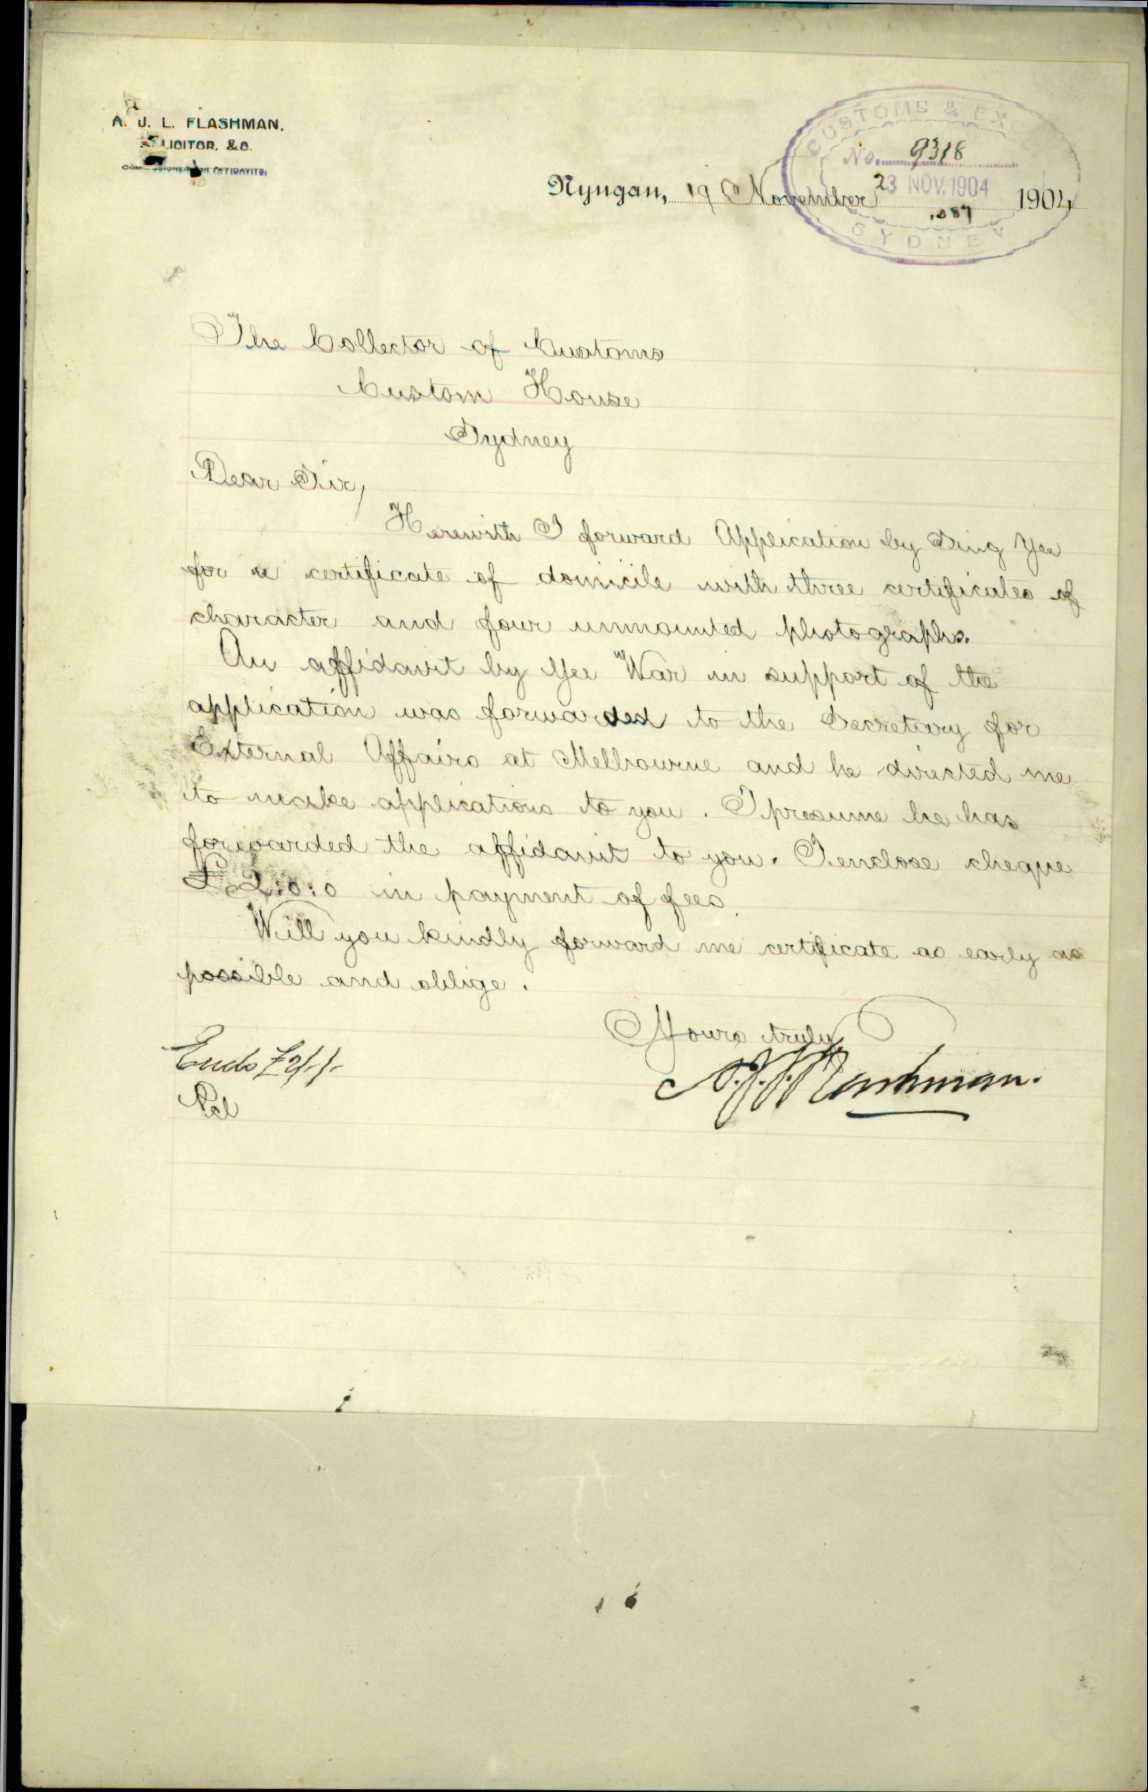 A. J. L. FLASHMAN,
SOLICITOR, &c.
CUSTOMS & EX
No. 9318
23 NOV. 1904
SYDNEY
Nyngan, 19 November 1904
The Collector of Customs
Custom House
Sydney
Dear Sir,
Herewith I forward Application by Sing Yee
for a certificate of domicile with three certificates of
character and four unmounted photographs.
An affidavit by Yee War in support of the
application was forwarded to the Secretary for
External Affairs at Melbourne and he directed me
to make applications to you. I presume he has
forwarded the affidavit to you. I enclose cheque
£2:0:0 in payment of fees.
Will you kindly forward me certificate as early as
possible and oblige.
Yours truly
A. J. L. Flashman.
Encls £2/-/-